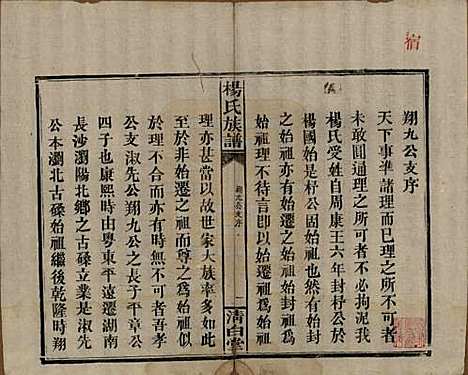 宿
翔九公支序
天下事準諸理而已理之所不可者
未敢圓通理之所可者不必拘泥我
楊氏受姓自周康王六年封杼公於
楊國始也是杼公固始祖也然有始封
之始祖亦有始遷之始祖以始封祖爲始
始祖理不待言即以始遷祖爲始祖
楊氏族譜
翔九公支序
清白堂
理亦甚當以故世家大族率多如此
至於非始遷之祖而尊之爲始祖
於理不合而亦有時無不可者吾孝
公支淑先公翔九公之長子平章公
四子也康熙時由粵東平遠遷湖南
長沙瀏陽北鄉之古磉立業是淑先
公本瀏北古磉始祖繼後乾隆時翔